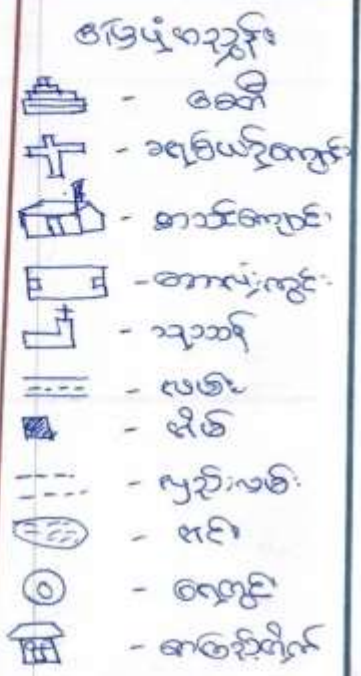 မြေပုံအညွှန်း
- စေတီ
- ခရစ်ယာန်ကျောင်း
- စာသင်ကျောင်း
- ဘောလုံးကွင်း
- သုသာန်
- လမ်း
- အိမ်
- လှည်းလမ်း
- အင်း
- ရေတွင်း
- စာကြည့်တိုက်